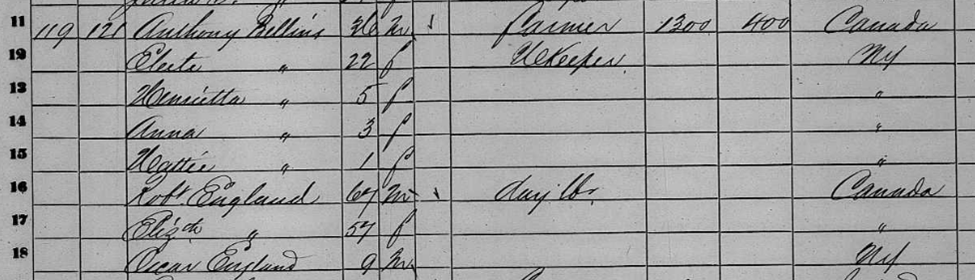 11 119 121 Anthony Bellins 36 m 1 Farmer 1300 400 Canada
12 Electe " 22 f HKeeper NY
13 Henrietta " 5 f "
14 Anna " 3 f "
15 Hattie " 1 f "
16 Robt England 67 m 1 day lbr Canada
17 Elizth " 57 f "
18 Oscar England 9 m NY